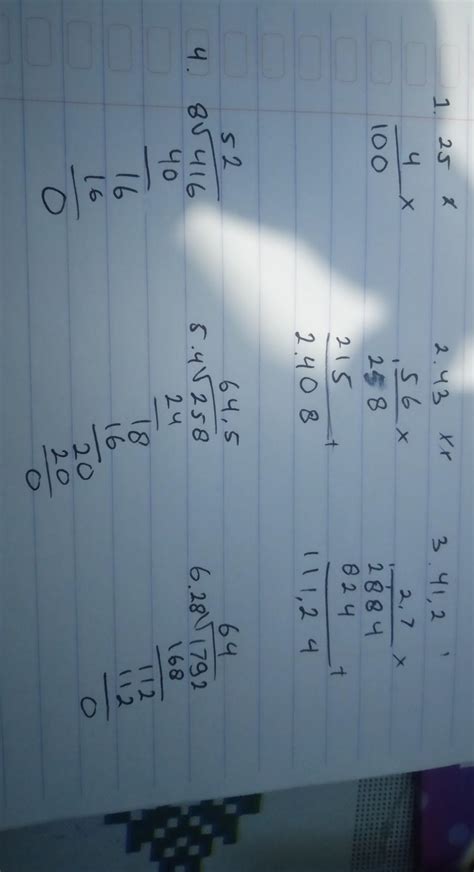 1. 25 x 2. 43 xx 3. 41,2
4 x 56 x 2,7 x
100 258 2884
215 + 824 +
2.408 111,24
52 64,5 64
4. 8√416 5. 4√258 6. 28√1792
40 24 168
16 18 112
16 16 112
0 20 0
20
0